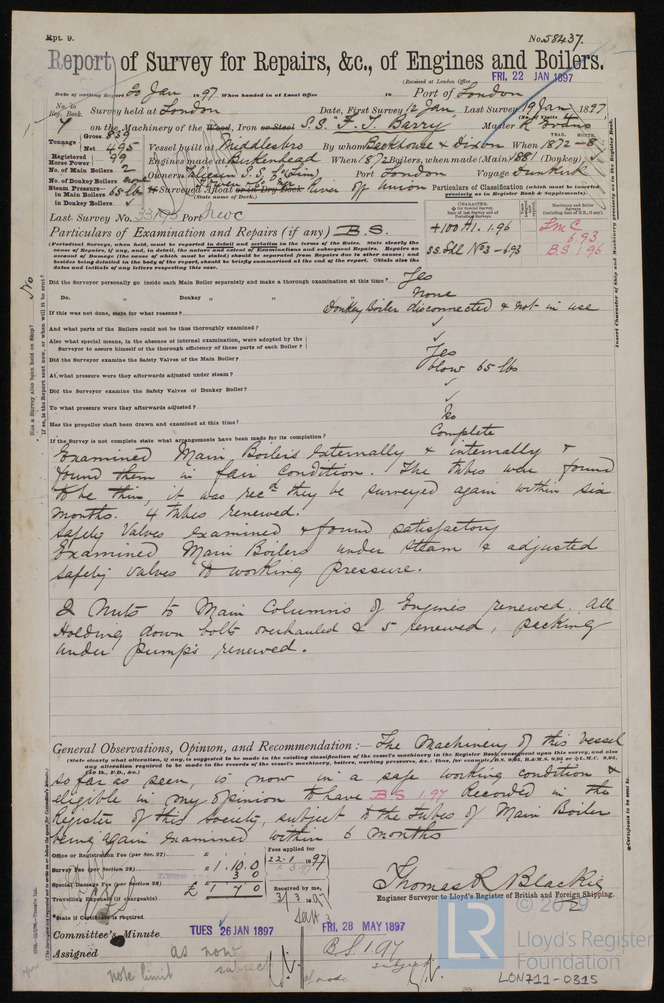 Rpt. 9.
No. 58437.
Report of Survey for Repairs, &c., of Engines and Boilers.
(Received at London Office
FRI, 22 JAN 1897
Date of writing Report 20 Jan 1897 When handed in at Local Office in Port of London
No. in Reg. Book.
Survey held at London Date, First Survey 12 Jan Last Survey 19 Jan 1897
on the Machinery of the Wood, Iron or Steel S.S. "F. T. Barry" Master R Evans
Tonnage Gross 839
Net 495
Vessel built at Middlesbro By whom Backhouse & Dixon When 1872-8
YEAR. MONTH.
Registered Horse Power 99
Engines made at Birkenhead When 1872 Boilers, when made (Main) 88 (Donkey)
No. of Main Boilers 2
Owners Taliesin S.S. Co (Lim) Port London Voyage Dunkirk
No. of Donkey Boilers none
Steam Pressure in Main Boilers 65 lbs
If Surveyed Afloat or in Dry Dock River off Union
(State name of Dock.)
in Donkey Boilers
Particulars of Classification (which must be inserted precisely as in Register Book & Supplements).
Last Survey No. 33193 Port Nwc
Particulars of Examination and Repairs (if any) B.S.
+100A1. 1.96
SS. Shl. No 3 - 6.93
LMC 6.93
B.S. 1.96
Did the Surveyor personally go inside each Main Boiler separately and make a thorough examination at this time? Yes
Do. Donkey " " none
If this was not done, state for what reasons? Donkey Boiler disconnected & not in use
And what parts of the Boilers could not be thus thoroughly examined?
Also what special means, in the absence of internal examination, were adopted by the Surveyor to assure himself of the thorough efficiency of those parts of each Boiler?
Did the Surveyor examine the Safety Valves of the Main Boiler? Yes
At what pressure were they afterwards adjusted under steam? blow 65 lbs
Did the Surveyor examine the Safety Valves of Donkey Boiler?
To what pressure were they afterwards adjusted?
Has the propeller shaft been drawn and examined at this time? No
If the Survey is not complete state what arrangements have been made for its completion? Complete
Examined Main Boilers externally & internally &
found them in fair condition. The tubes were found
to be thin, it was recd they be surveyed again within six
months. 4 tubes renewed.
Safety Valves examined & found satisfactory
Examined Main Boilers under steam & adjusted
safety valves to working pressure.
2 Nuts to Main Columns of Engines renewed. All
Holding down bolts overhauled & 5 renewed, packing
under pumps renewed.
General Observations, Opinion, and Recommendation:— The Machinery of this Vessel
so far as seen, is now in a safe working condition &
eligible in my opinion to have B.S 1.97 Recorded in the
Register of this Society, subject to the tubes of Main Boiler
being again examined within 6 months
Office or Registration Fee (per Sec. 27)
Survey Fee (per Section 28) £ 1.10.0
3 0
Special Damage Fee (per Section 28) £ 1 7 0
Travelling Expenses (if chargeable)
Fees applied for
22.1.1897
Received by me,
State if Certificate is required
Thomas R Blackie
Engineer Surveyor to Lloyd's Register of British and Foreign Shipping.
Committee's Minute TUES 26 JAN 1897
FRI. 28 MAY 1897
Assigned as now subject
B.S. 1.97
subject
note limit
LR
© 2019
Lloyd's Register
Foundation
LON711-0315